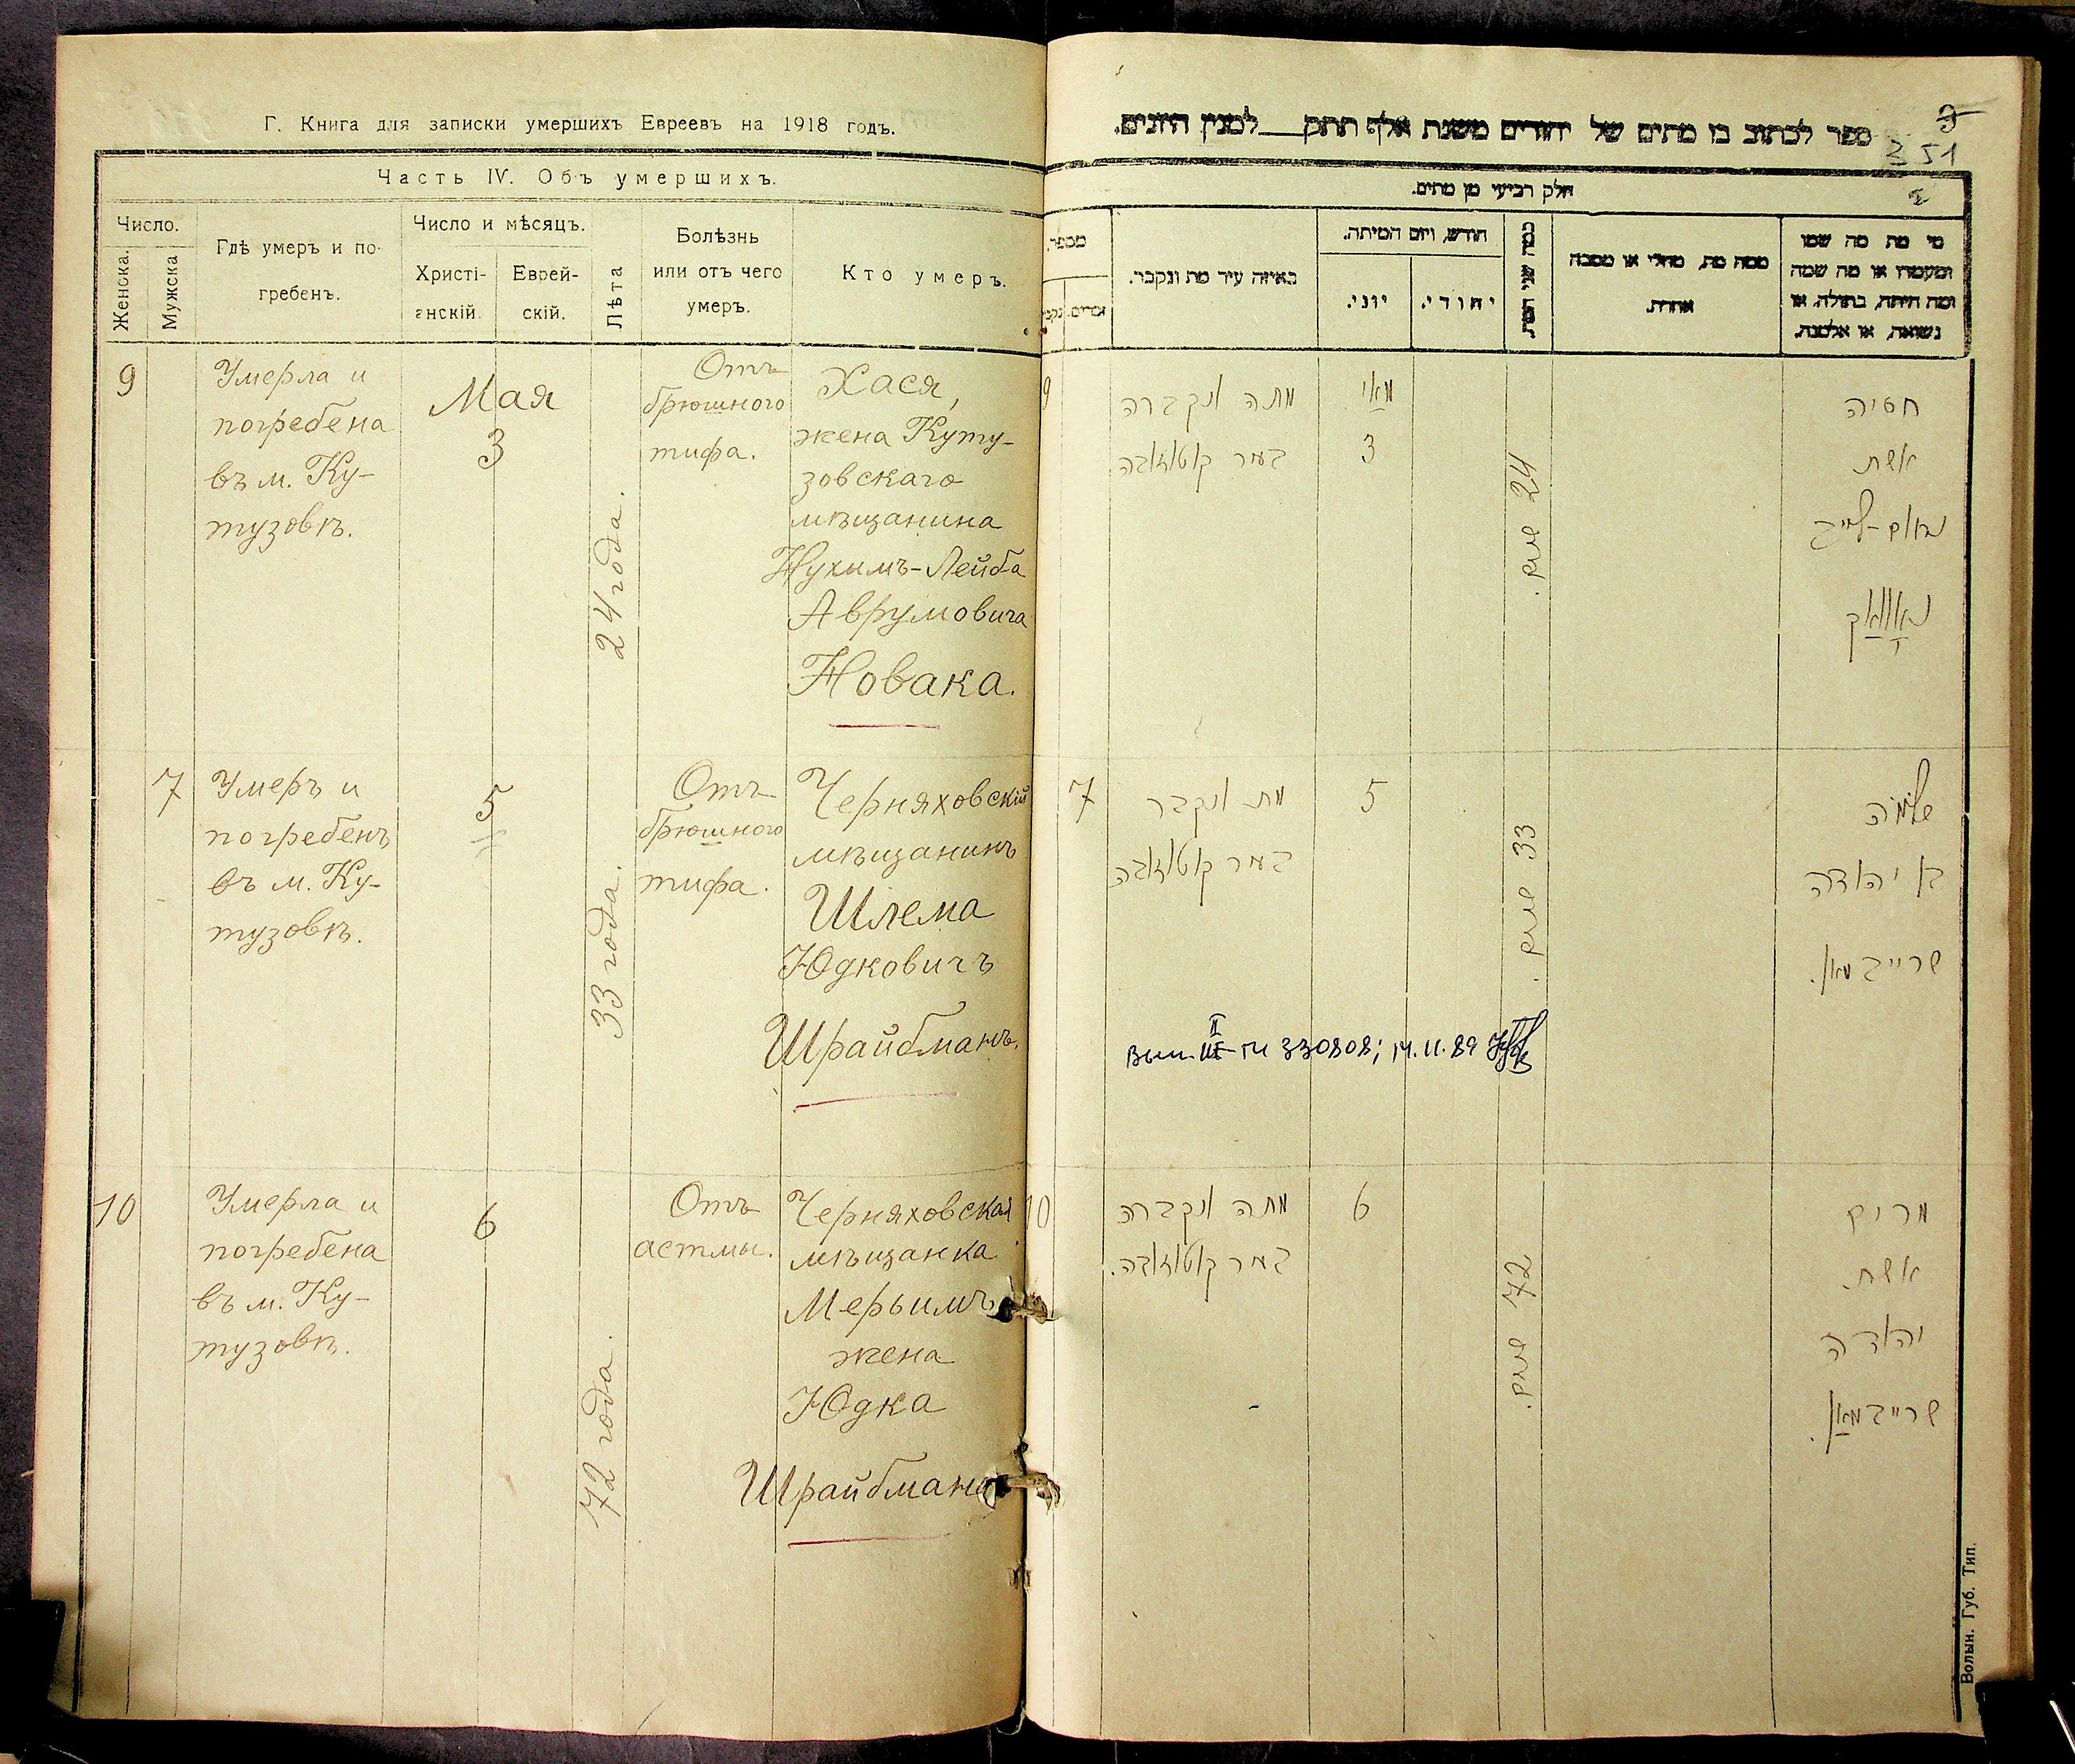 Г. Книга для записки умершихъ Евреевъ на 1918 годъ.
Часть IV. Объ умершихъ.
Число.
Женска.
Мужска
Гдѣ умеръ и по-
гребенъ.
Число и мѣсяцъ.
Христі-
анскій.
Еврей-
скій.
Лѣта
Болѣзнь
или отъ чего
умеръ.
Кто умеръ.
9
Умерла и
погребена
въ м. Ку-
тузовкѣ.
Мая
3
24 года.
Отъ
брюшного
тифа.
Хася,
жена Куту-
зовскаго
мѣщанина
Нухымъ-Лейба
Аврумовича
Новака.
7
Умеръ и
погребенъ
въ м. Ку-
тузовкѣ.
5
33 года.
Отъ
брюшного
тифа.
Черняховскій
мѣщанинъ
Шлема
Юдковичъ
Шрайбманъ.
10
Умерла и
погребена
въ м. Ку-
тузовкѣ.
6
72 года.
Отъ
астмы.
Черняховская
мѣщанка
Мерьимъ
жена
Юдка
Шрайбмана
ספר לכתוב בו מתים של יהודים משנת אלף תתק למנין היונים.
351
חלק רביעי מן מתים.
מספר.
זכרים.
נקב
באיזה עיר מת ונקבר.
חודש, ויום המיתה.
יוני.
יהודי.
כמה שני המת.
ממה מת, מחלי או מסבה
אחרת.
מי מת מה שמו
ומעמדו או מה שמה
ומה היתה, בתולה, או
נשואה, או אלמנה.
9
מתה ונקברה
בעיר קוטוזובה
מאי
3
24 שנים.
חסיה
אשת
נחום-לייב
נאוואק
7
מת ונקבר
בעיר קוטוזובה
5
33 שנים.
שלמה
בן יהודה
שרייבמאן.
330808; 14.11.89
10
מתה ונקברה
בעיר קוטוזובה.
6
72 שנים.
מרים
אשת
יהודה
שרייבמאן.
Волын. Губ. Тип.